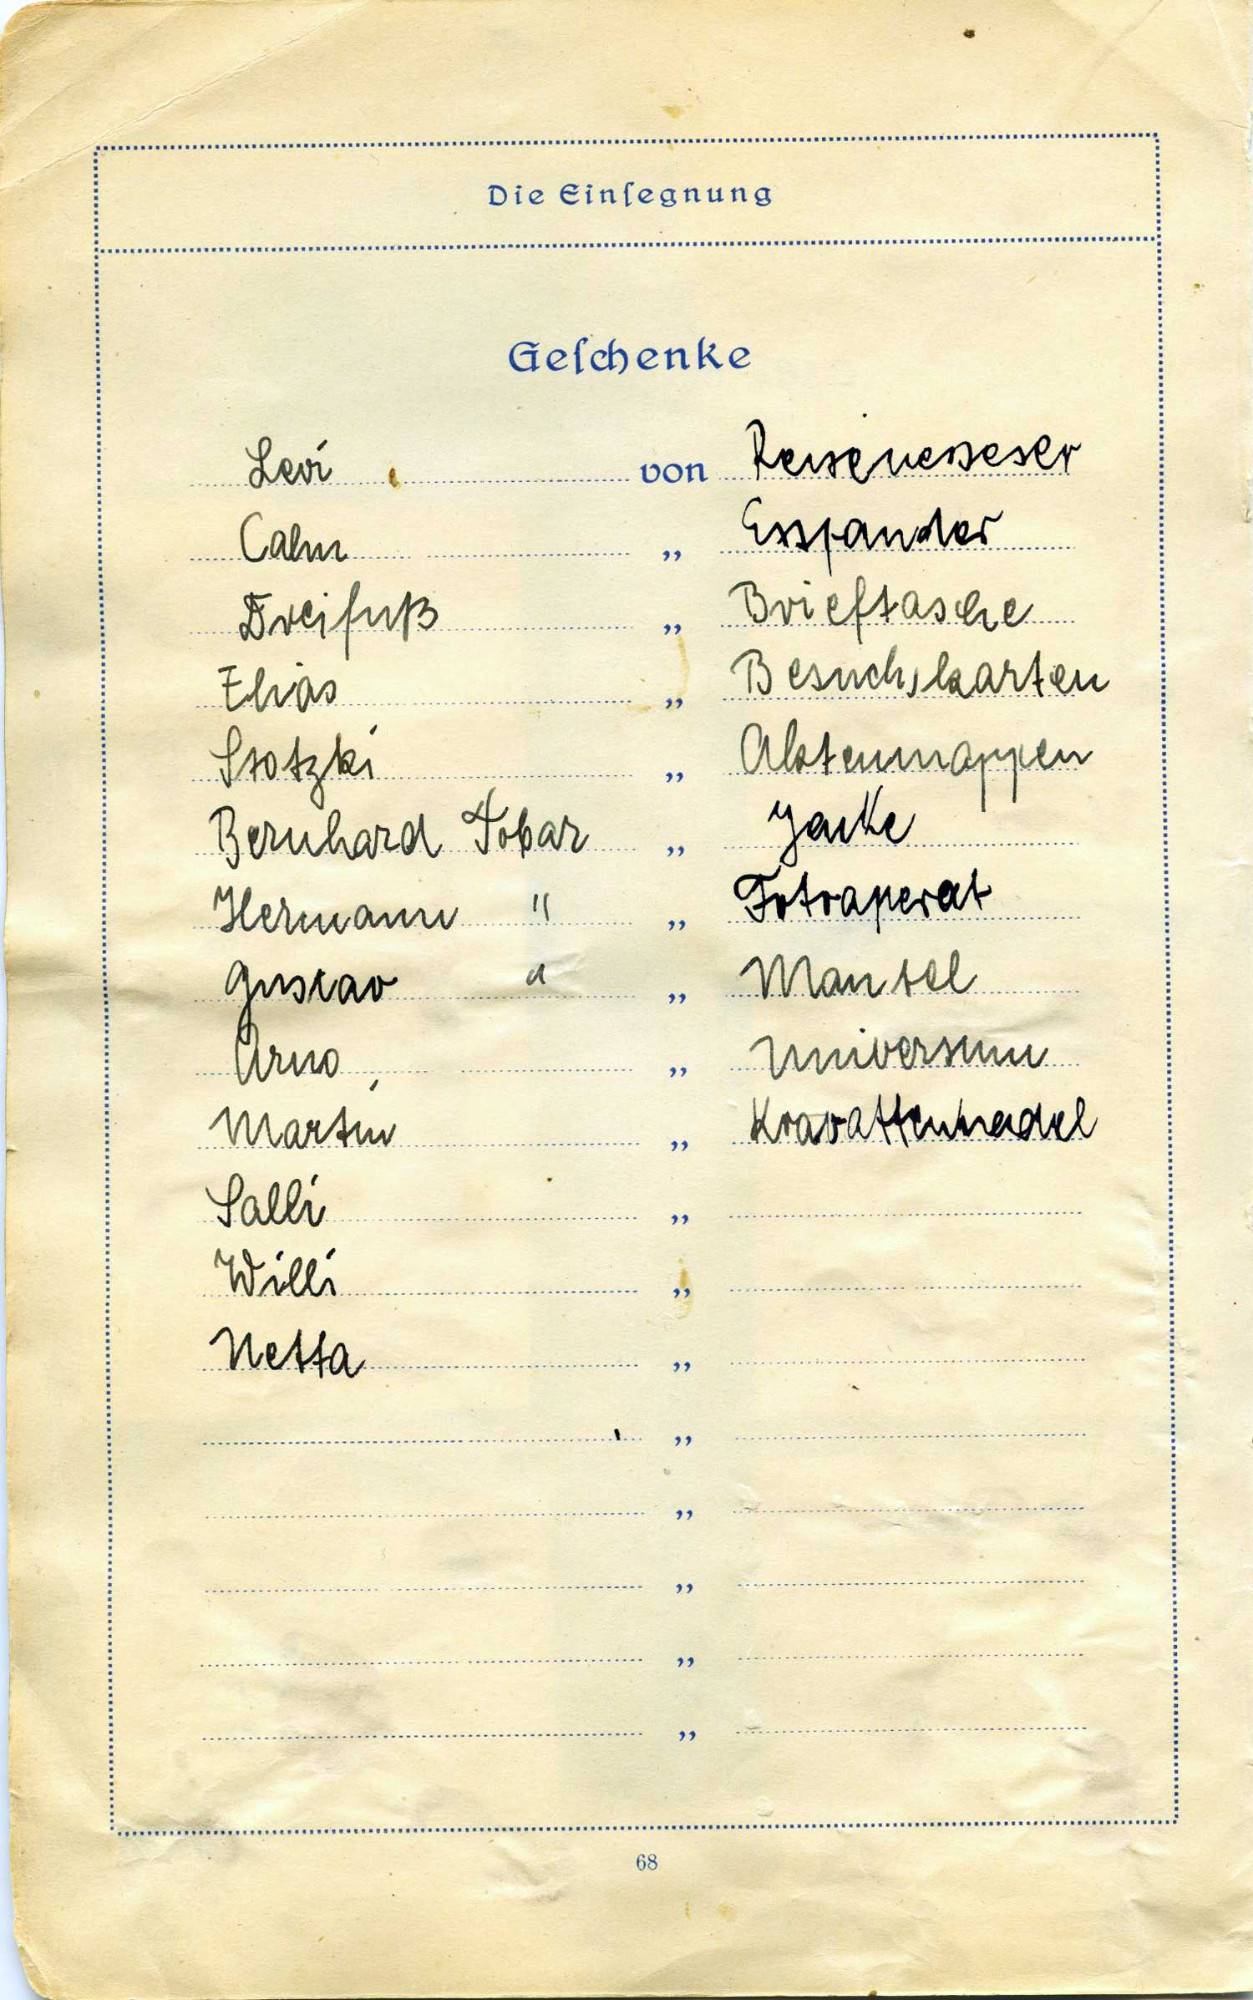 Die Einſegnung
Geſchenke
Levi von Reisenesseser
Calm „ Expander
Dreifuß „ Brieftasche
Elias „ Besuchskarten
Stotzki „ Aktenmappen
Bernhard Tobar „ Jacke
Hermann " „ Fotoaperat
Gustav " „ Mantel
Arno „ Universum
Martin „ Kravattennadel
Salli „
Willi „
Netta „
„
„
„
„
„
68